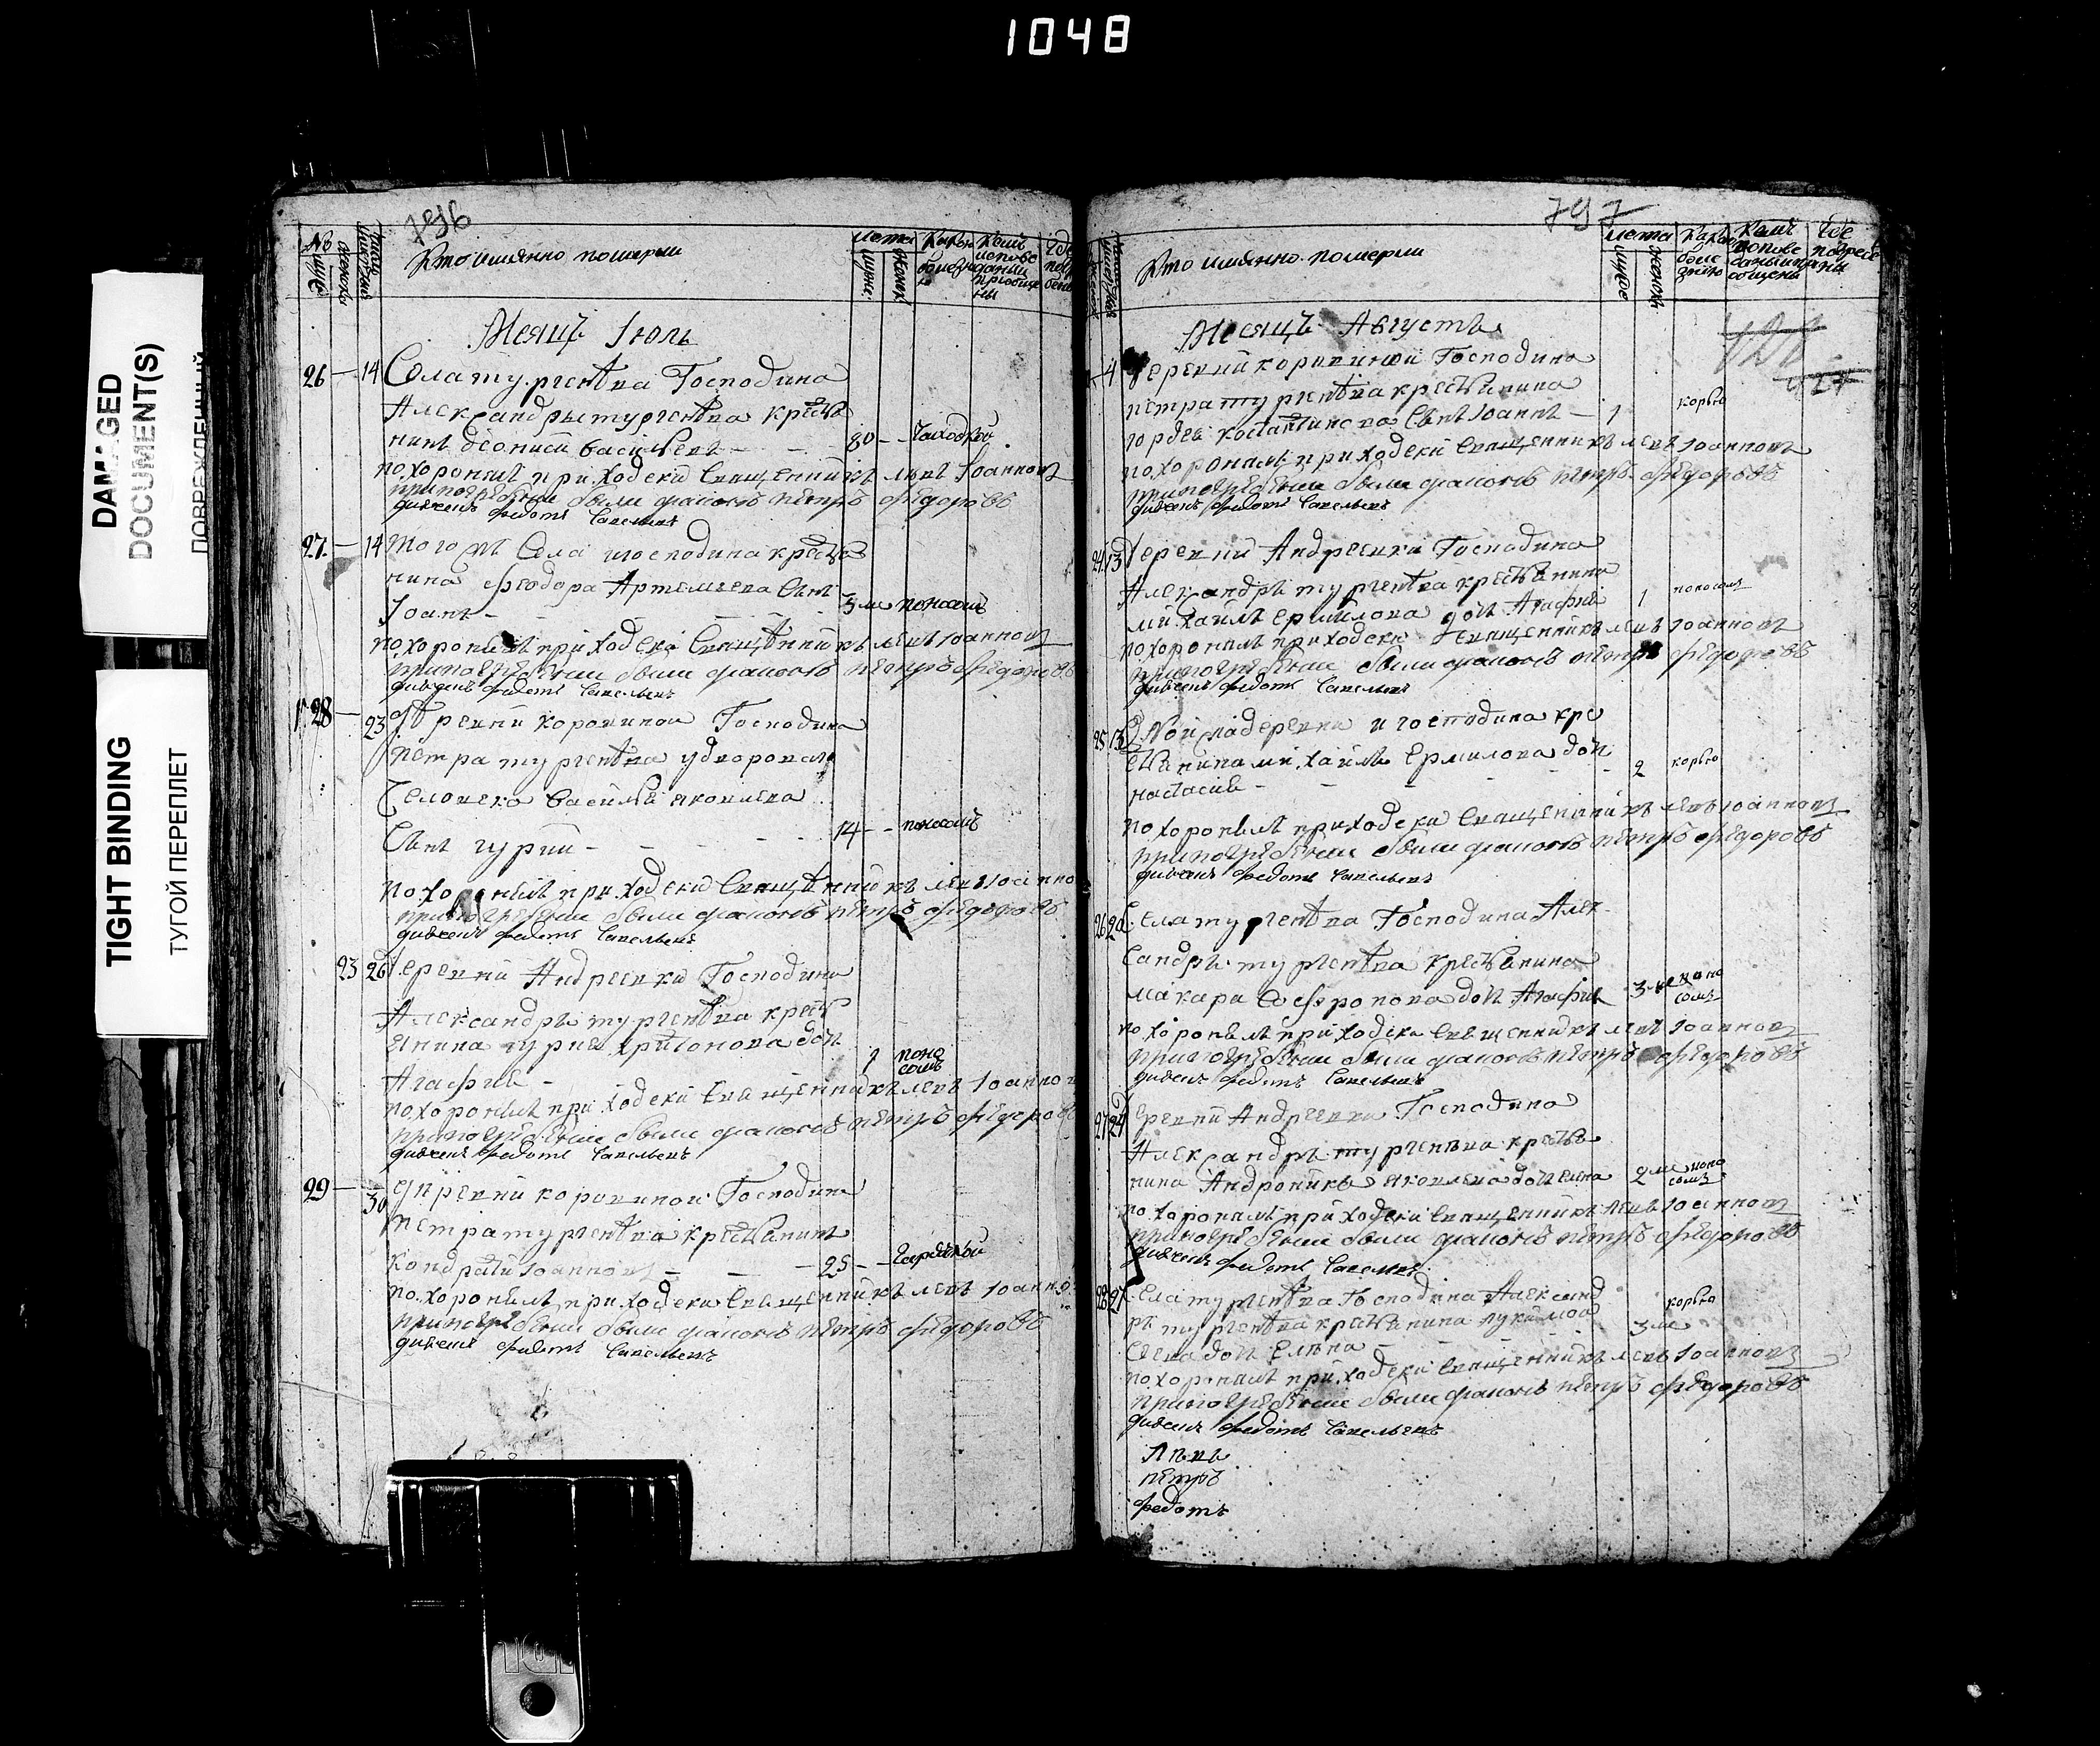 1048
DAMAGED
DOCUMENT(S)
ПОВРЕЖДЕННЫЙ
TIGHT BINDING
ТУГОЙ ПЕРЕПЛЕТ
796
№
мужс
женск
Кто имянно помершии
лета
мужс:
женск
Месяцъ Июль
26 — 14 Села тургенева Господина
Александры тургенева крестья
нинъ дионисий васильевъ — 80 — чахоткой
похоронилъ приходский священникъ левъ Iоанновъ
при погребении были дьяконъ петръ федоровъ
дьяченъ федотъ савельевъ
27 — 14 того жъ села и господина крестья
нина феодора Артемьева сынъ
Iоанъ — 3 ме поносомъ
похоронилъ приходский священникъ левъ Iоанновъ
при погребении были дьяконъ петръ федоровъ
дьяченъ федотъ савельевъ
28 — 23 деревни коровиной Господина
петра тургенева удворонаго
человека василья яковлева
сынъ гурий — 14 — поносомъ
похоронилъ приходский священникъ левъ Iоанно
при погребении были дьяконъ петръ федоровъ
дьяченъ федотъ савельевъ
23 26 деревни Андреевки Господина
Александры тургенева крест
янина гурия харитонова дочь
Агафия — 1 поно
сомъ
похоронилъ приходский священникъ левъ Iоанно
при погребении были дьяконъ петръ федоров
дьяченъ федотъ савельевъ
29 — 30 деревни коровиной Господина
петра тургенева крестьянинъ
кондратий Iоанновъ — 25 — горячкой
похоронилъ приходский священникъ левъ Iоанно
при погребении были дьяконъ петръ федоровъ
дьяченъ федотъ савельевъ
797
Кто имянно помершии
лета
мужс
женск
Где
погребе
ны
Месяцъ Августъ
4 деревни коровиной Господина
петра тургенева крестьянина
гордея костантинова сынъ Iоаннъ — 1 корью
похоронилъ приходский священникъ левъ Iоанновъ
при погребении были дьяконъ петръ федоровъ
дьяченъ федотъ савельевъ
24 13 деревни Андреевки Господина
Александры тургенева крестьянина
михайлы ермилова дочь Агафия 1 поносомъ
похоронилъ приходский священникъ левъ Iоанновъ
при погребении были дьяконъ петръ федоровъ
дьяченъ федотъ савельевъ
25 13 Той жа деревни и господина кре
стьянина михайлы Ермилова дочь
настасия — 2 корью
похоронилъ приходский священникъ левъ Iоанновъ
при погребении были дьяконъ петръ федоровъ
дьяченъ федотъ савельевъ
26 20 Села тургенева Господина Алек
сандры тургенева крестьянина
макара Софронова дочь Агафия 3 ме поно
сомъ
похоронилъ приходский священникъ левъ Iоанновъ
при погребении были дьяконъ петръ федоровъ
дьяченъ федотъ савельевъ
27 24 деревни Андреевки Господина
Александры тургенева крестья
нина Андроника яковлева дочь елена 2 ме поно
сомъ
похоронилъ приходский священникъ левъ Iоанновъ
при погребении были дьяконъ петръ федоровъ
дьяченъ федотъ савельевъ
28 27 Села тургенева Господина Александ
ры тургенева крестьянина
дочь Елена 3 ме корью
похоронилъ приходский священникъ левъ Iоанновъ
при погребении были дьяконъ петръ федоровъ
дьяченъ федотъ савельевъ
Левъ
петръ
федотъ